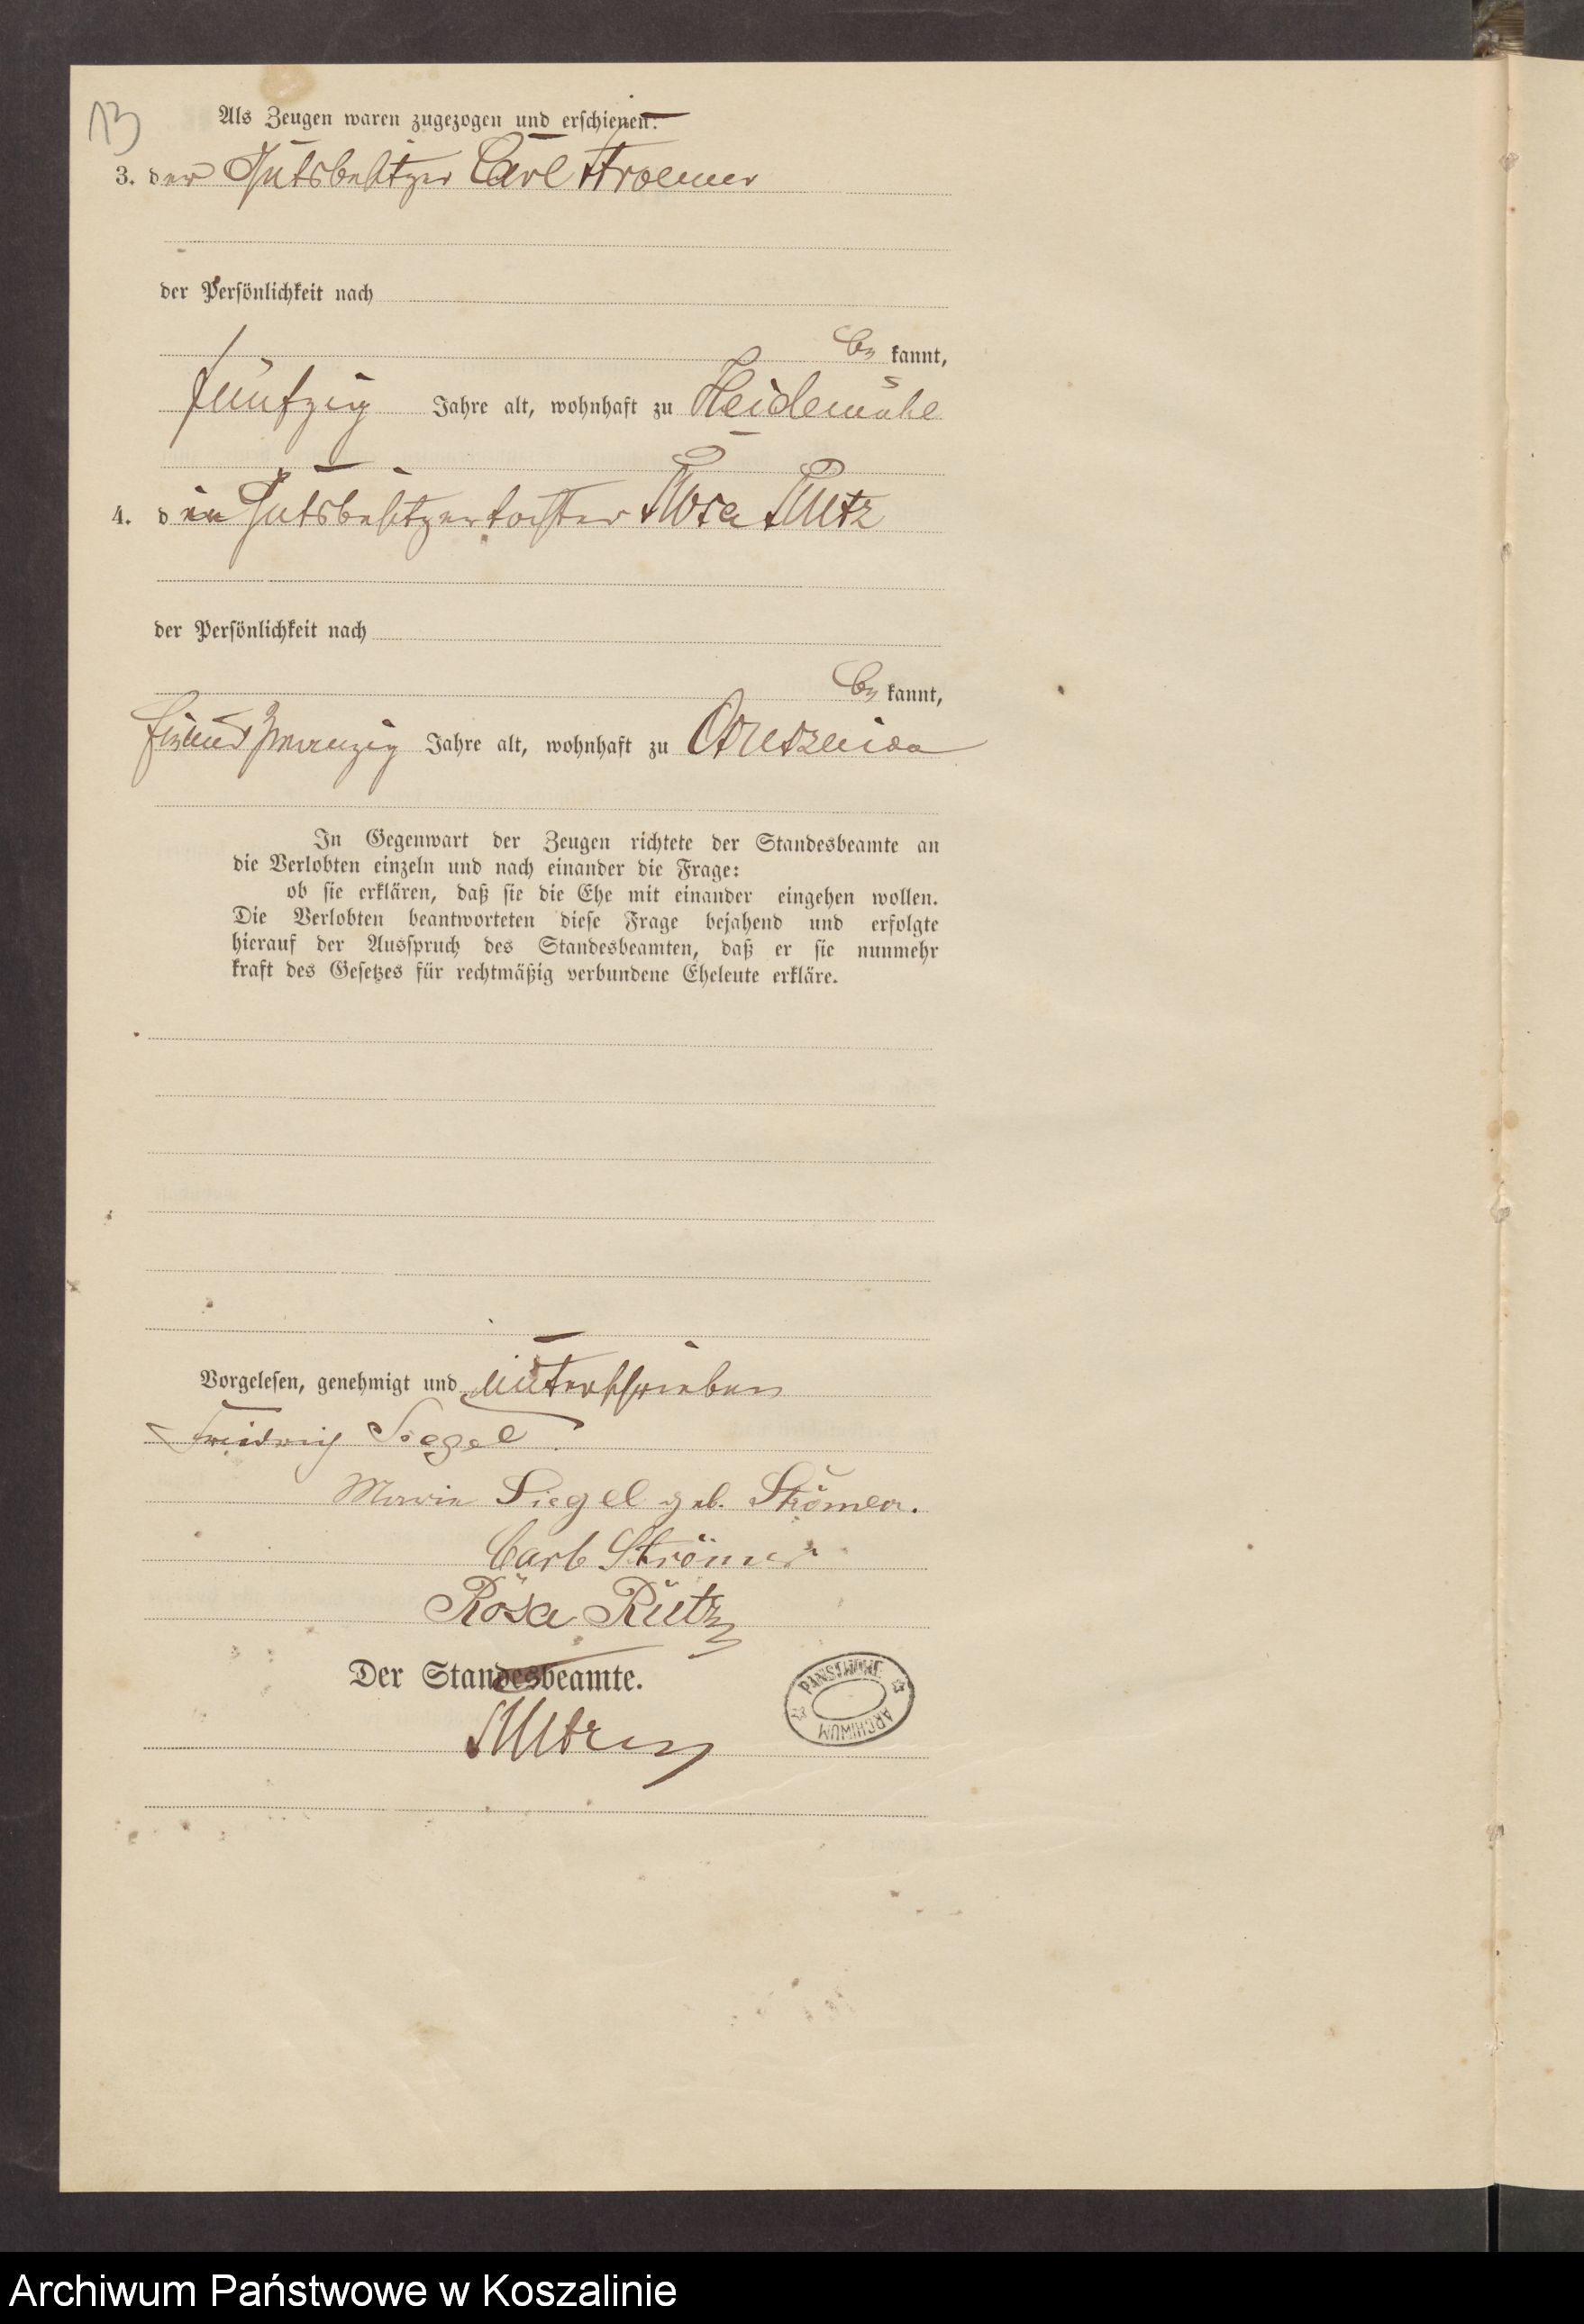 13
Als Zeugen waren zugezogen und erschienen:
3. der Gutsbesitzer Carl Stroemer
der Persönlichkeit nach
be kannt,
fünfzig Jahre alt, wohnhaft zu Heidemühl
4. die Gutsbesitzertochter Rosa Rütz
der Persönlichkeit nach
be kannt,
zwanzig Jahre alt, wohnhaft zu
In Gegenwart der Zeugen richtete der Standesbeamte an
die Verlobten einzeln und nach einander die Frage:
ob sie erklären, daß sie die Ehe mit einander eingehen wollen.
Die Verlobten beantworteten diese Frage bejahend und erfolgte
hierauf der Ausspruch des Standesbeamten, daß er sie nunmehr
kraft des Gesetzes für rechtmäßig verbundene Eheleute erkläre.
Vorgelesen, genehmigt und unterschrieben
Friedrich Siegel.
Marie Siegel geb. Strömer.
Carl Strömer
Rosa Rütz
Der Standesbeamte.
PAŃSTWOWE ARCHIWUM
Archiwum Państwowe w Koszalinie